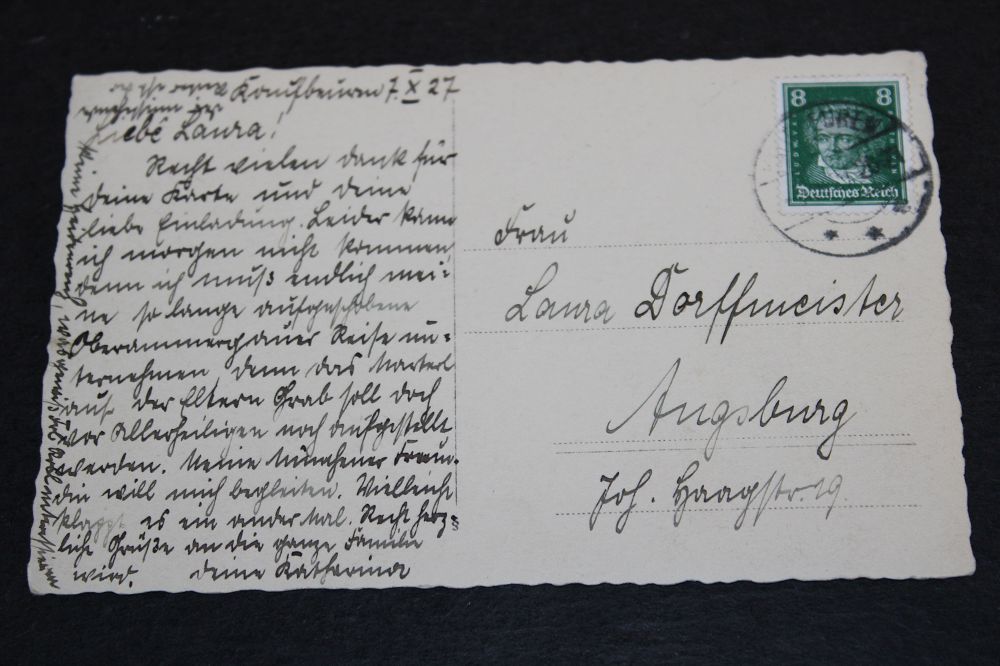 Kaufbeuren 7. X 27
Liebe Laura!
Recht vielen Dank für
deine Karte und deine
liebe Einladung. Leider kann
ich morgen nicht kommen,
denn ich muß endlich mei-
ne so lange aufgeschobene
Oberammergauer Reise un-
ternehmen, denn das Marterl
auf der Eltern Grab soll doch
vor Allerheiligen noch aufgestellt
werden. Meine Münchener Freun-
din will mich begleiten. Vielleicht
klappt es ein ander Mal. Recht herz-
liche Grüße an die ganze Familie
deine Katharina
wird.
8 8
Deutsches Reich
Frau
Laura Dorffmeister
Augsburg
Joh. Haagstr. 19.